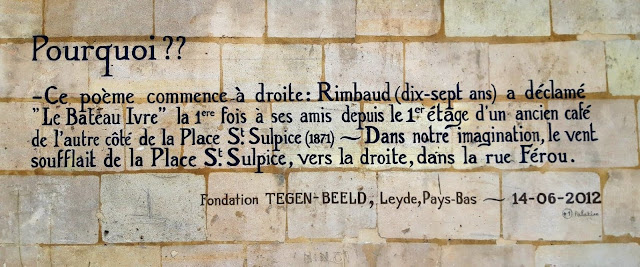 Pourquoi ??
-Ce poème commence à droite: Rimbaud (dix-sept ans) a déclamé
"Le Bâteau Ivre" la 1ere fois à ses amis depuis le 1er étage d'un ancien café
de l'autre côté de la Place St. Sulpice (1871) ~ Dans notre imagination, le vent
soufflait de la Place St. Sulpice, vers la droite, dans la rue Férou.
Fondation TEGEN-BEELD, Leyde, Pays-Bas ~ 14-06-2012